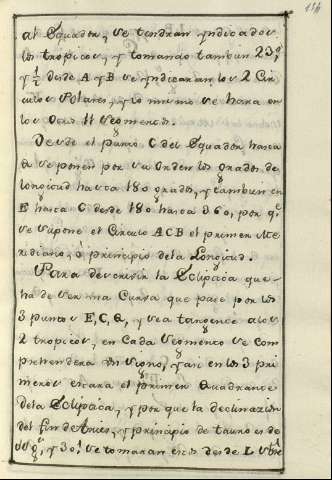 al Equador, se tendran yndicados
los tropicos, y tomando tambien 23.g
y ½ desde A y B se yndicaran los 2 Cir
culos Polares, y lo mismo se hara en
los otros 11 Segmentos.
Desde el punto C del Equador, hasta
se ponen por su orden los grados de
longitud hasta 180 grados, y tambien en
E hasta C desde 180 hasta 360, por q.e
se supone el Circulo ACB el primer Me
ridiano, ó principio de la Longitud.
Para descrivir la Ecliptica que
ha de ser una Curba que pase por los
3 puntos E, C, Q, y sea tangente a los
2 tropicos, en Cada Segmento se com
prehendera un signo, y asi en los 3 pri
meros estara el primer Quadrante
de la Ecliptica, y por que la declinazion
del fin de Aries, y principio de tauro es de
g.s y 30' se tomaran estos desde L sobre